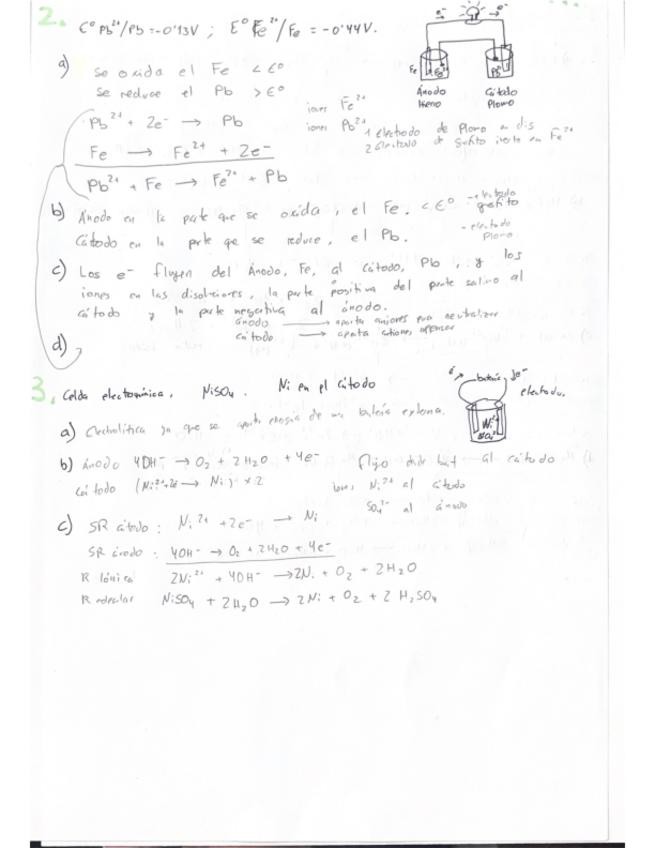 2. E° Pb²⁺/Pb = -0'13V ; E° Fe²⁺/Fe = -0'44V.
e⁻ e⁻
a) Se oxida el Fe < E°
Se reduce el Pb > E°
Fe Fe²⁺ Pb²⁺
Ánodo Cátodo
Plomo
iones Fe²⁺
iones Pb²⁺
Pb²⁺ + 2e⁻ → Pb
1 electrodo de Plomo en dis
2 electrodo de Grafito inerte en Fe²⁺
Fe → Fe²⁺ + 2e⁻
Pb²⁺ + Fe → Fe²⁺ + Pb
b) Ánodo en la parte que se oxida, el Fe. < E° grafito
Cátodo en la parte que se reduce, el Pb. - electrodo Plomo
c) Los e⁻ fluyen del Ánodo, Fe, al Cátodo, Pb, y los
iones en las disoluciones, la parte positiva del puente salino al
cátodo y la parte negativa al ánodo.
ánodo → aporta aniones para neutralizar
cátodo → aporta cationes
d)
3. Celda electroquímica, NiSO₄. Ni en el Cátodo
batería e⁻ electrodo,
Ni²⁺
SO₄²⁻
a) Electrolítica ya que se aporta energía de una batería externa.
b) ánodo 4OH⁻ → O₂ + 2H₂O + 4e⁻ flujo desde bat al cátodo
Cátodo (Ni²⁺+2e → Ni) x 2 iones Ni²⁺ al cátodo
SO₄²⁻ al ánodo
c) SR cátodo : Ni²⁺ + 2e⁻ → Ni
SR ánodo : 4OH⁻ → O₂ + 2H₂O + 4e⁻
R Iónica 2Ni²⁺ + 4OH⁻ → 2Ni + O₂ + 2H₂O
R molecular NiSO₄ + 2H₂O → 2Ni + O₂ + 2 H₂SO₄